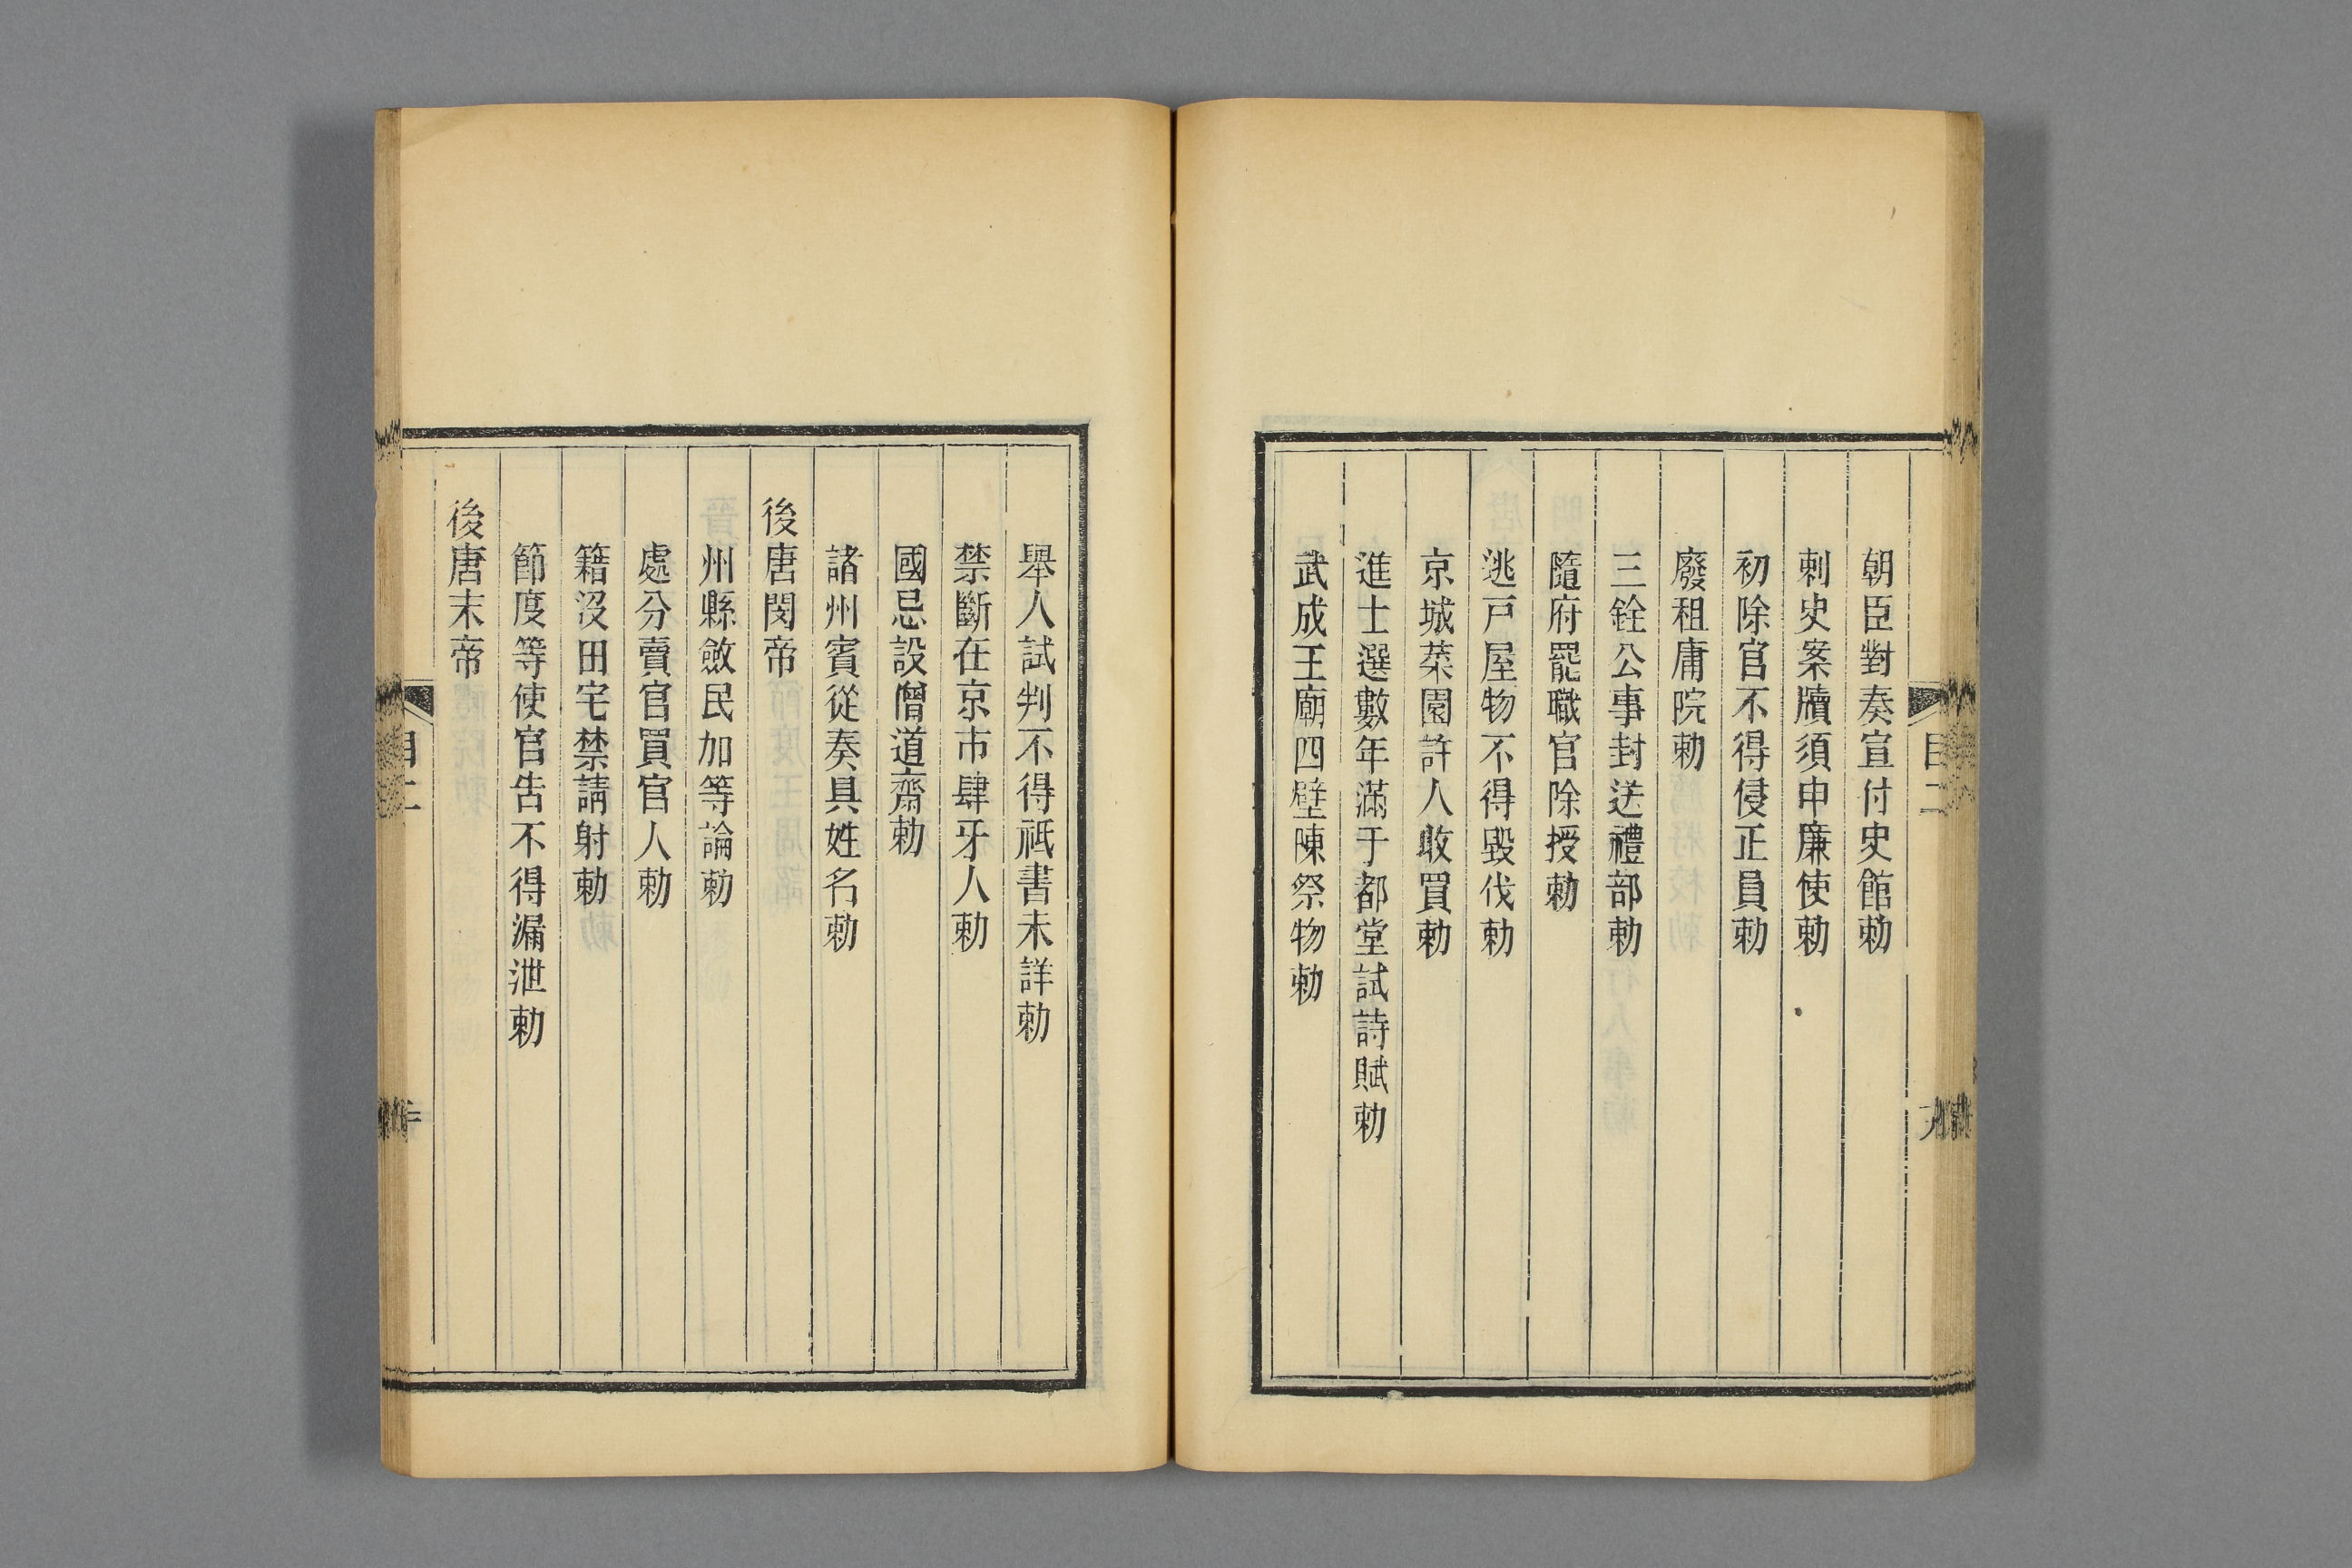 朝臣對奏宣付史館勅
刺史案牘須申廉使勅
初除官不得侵正員勅
廢租庸院勅
三銓公事封送禮部勅
隨府罷職官除授勅
逃戸屋物不得毀伐勅
京城菜園許人收買勅
進士選數年滿于都堂試詩賦勅
武成王廟四壁陳祭物勅
舉人試判不得祇書未詳勅
禁斷在京市肆牙人勅
國忌設僧道齋勅
諸州賓從奏具姓名勅
後唐閔帝
州縣斂民加等論勅
處分賣官買官人勅
籍沒田宅禁請射勅
節度等使官告不得漏泄勅
後唐末帝
目二